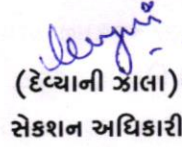 (દેવ્યાની ઝાલા)
સેકશન અધિકારી